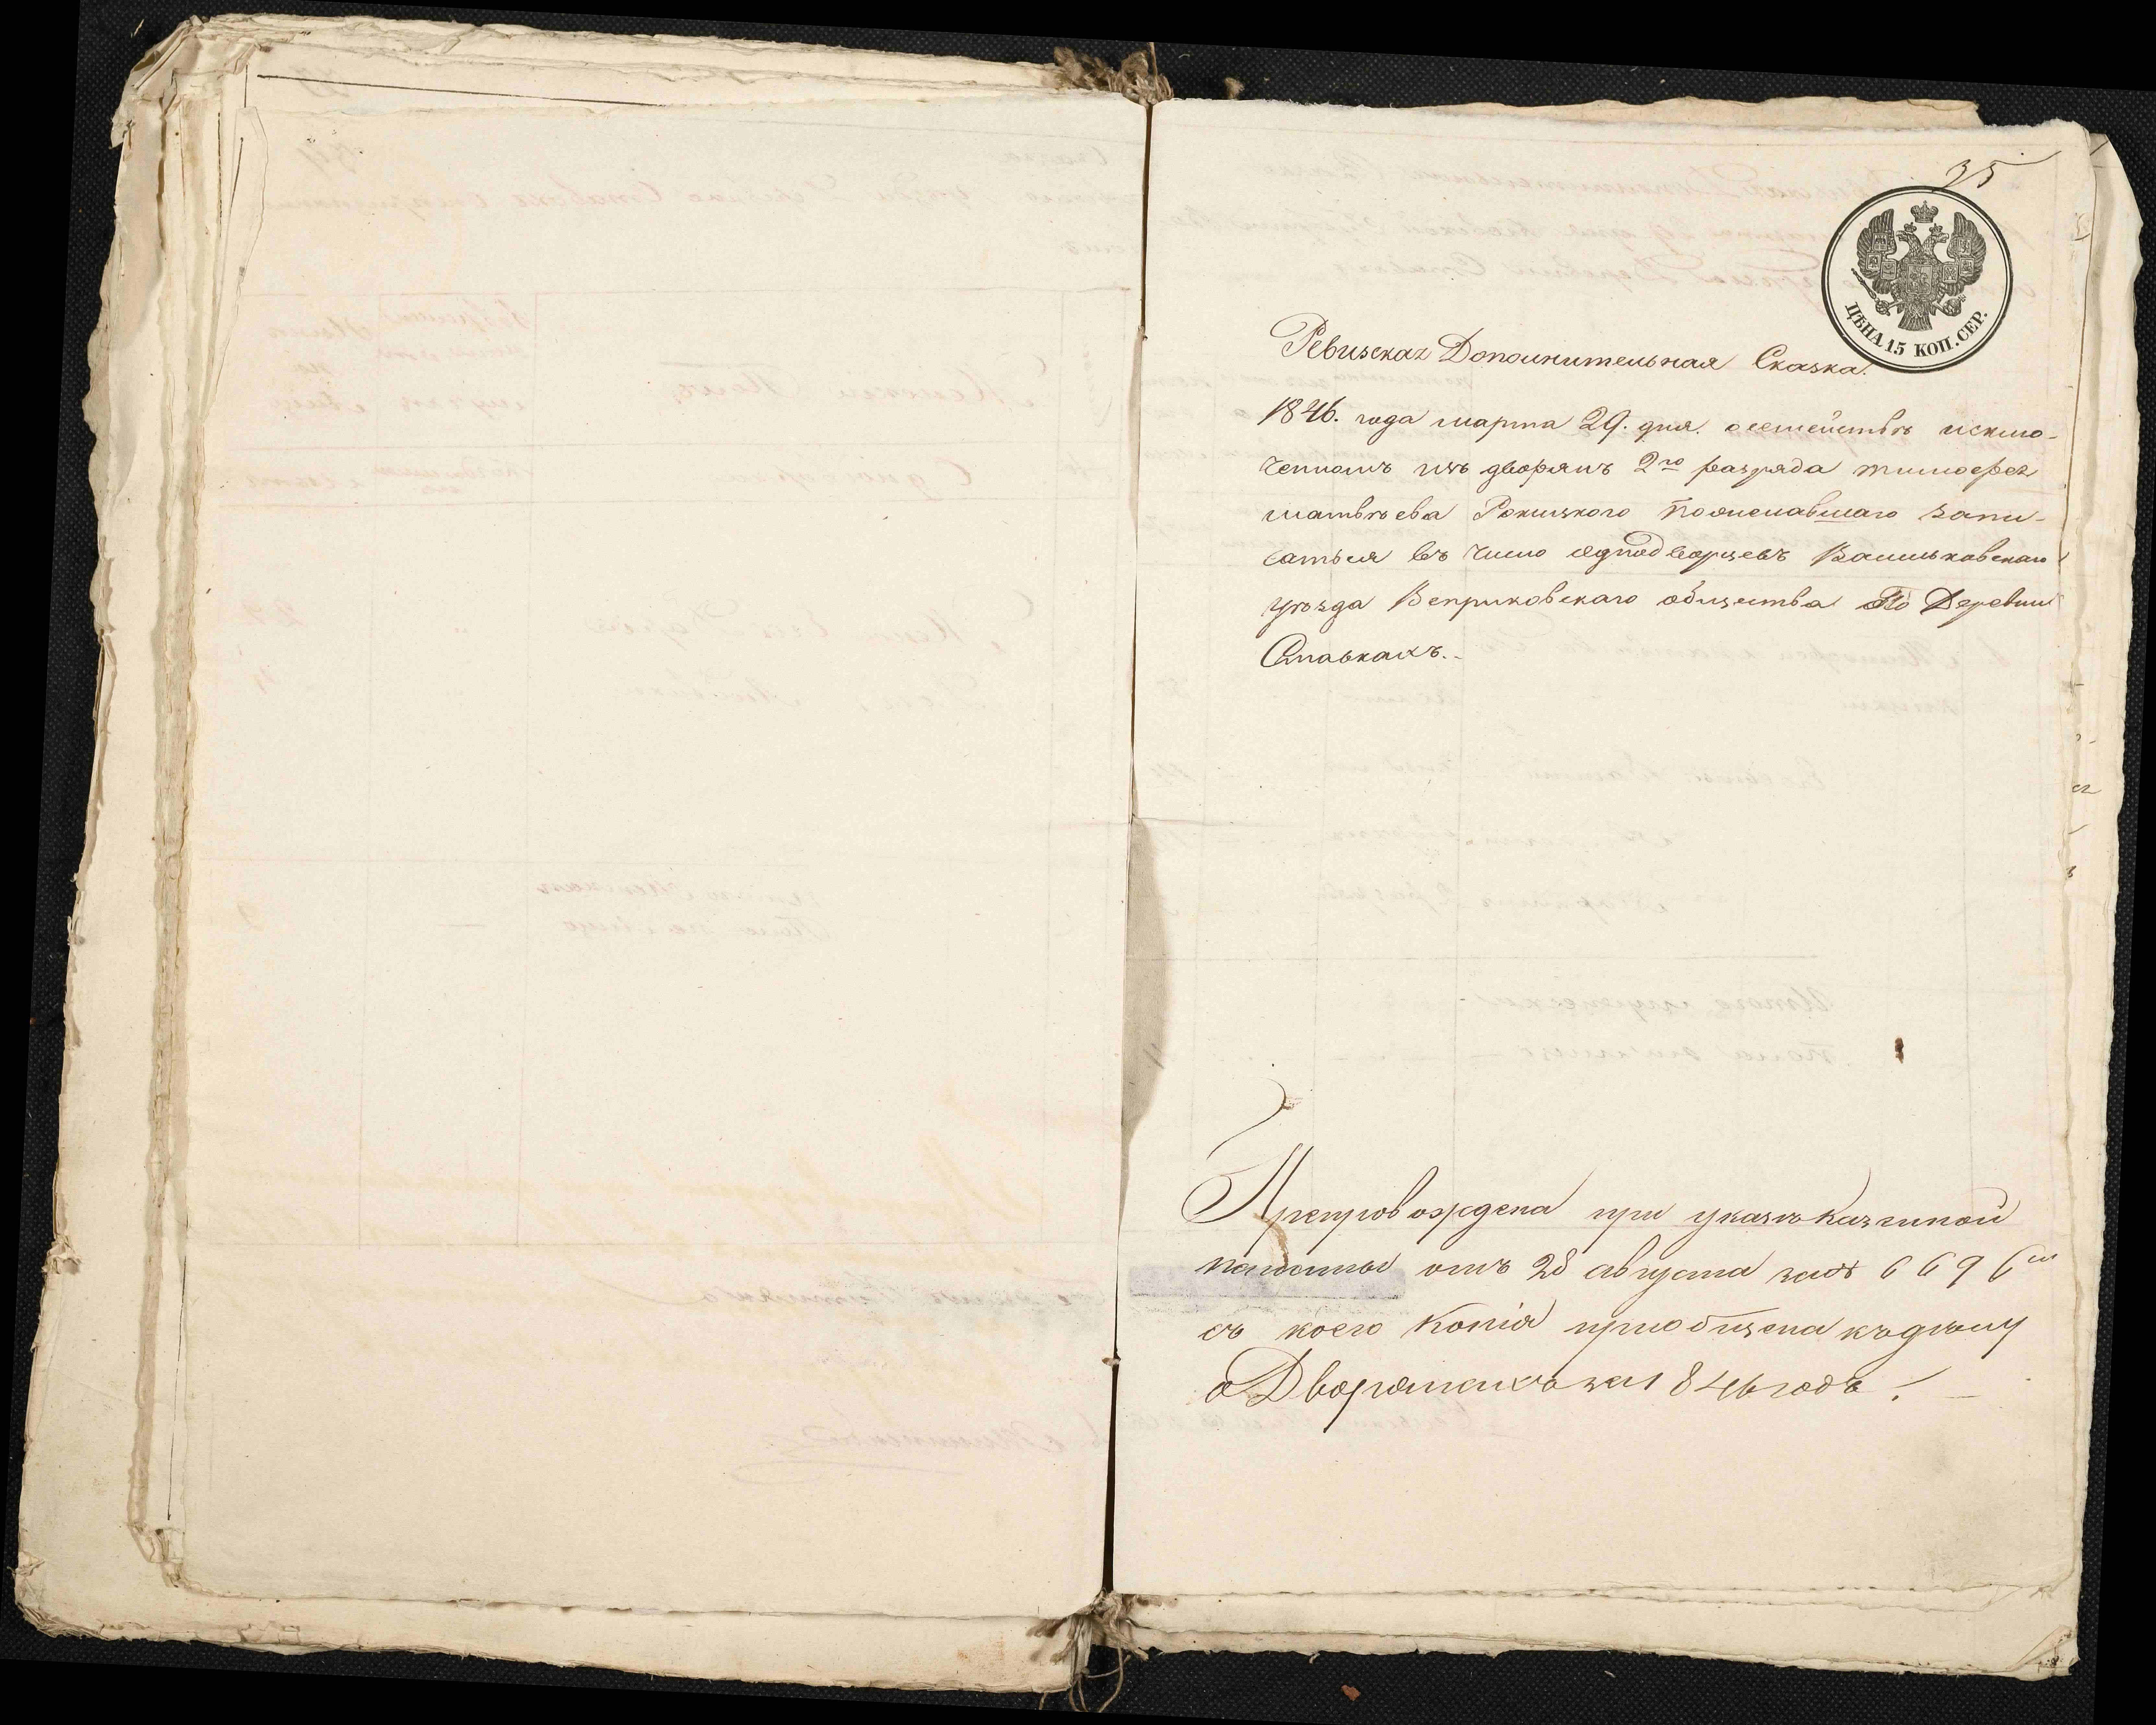 35
ЦѢНА 15 КОП. СЕР.
Ревизская Дополнительная Сказка.
1846. года марта 29. дня. о семействѣ исклю-
ченномъ изъ дворянъ 2го разряда Тимофея
Матвѣева Рокицкого пожелавшаго запи-
саться въ число однодворцевъ Васильковскаго
уѣзда Веприковскаго общества По Деревни
Ставкахъ.
Препровождена при указѣ казенной
палаты отъ 28 августа за № 6696м
съ коего копія пріобщена къ дѣлу
о Дворянахъ за 1846 годъ.